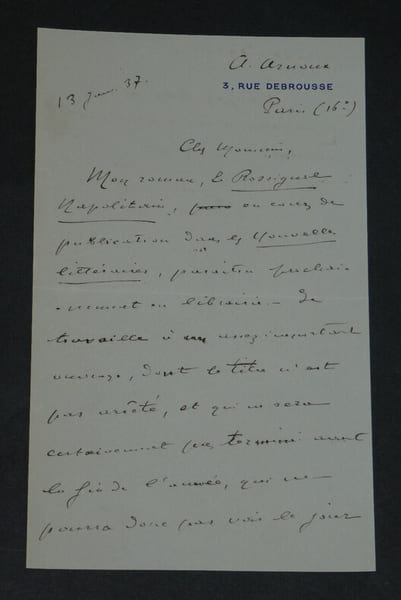 A. Arnoux
3, RUE DEBROUSSE
Paris (16e)
13 37.
Cher Monsieur,
Mon roman, le Rossignol
Napolitain, en cours de
publication dans les Nouvelles
littéraires, paraîtra prochai-
nement en librairie. Je
travaille à un assez important
ouvrage, dont le titre n'est
pas arrêté, et qui ne sera
certainement pas terminé avant
la fin de l'année, qui ne
pourra donc pas voir le jour